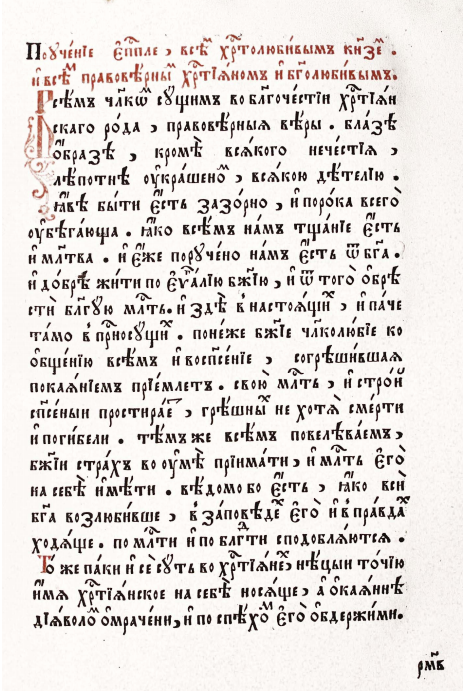 Поꙋче́нїе є҆пⷭ҇пле , всѣ́мъ хрⷭ҇толюби́вымъ кнѧ҃зємъ .
и҆ всѣ́мъ правовѣ́рнымъ хрⷭ҇тїѧ́номъ и҆ бг҃олюби́вымъ.
Всѣ́мъ чл҃кѡмъ сꙋ́щимъ во бл҃гоче́стїи хрⷭ҇тїѧ́н
скаго ро́да , правовѣ́рныѧ вѣ́ры . бла́зѣ
ѻ҆́бразѣ , кромѣ̀ всѧ́кого нече́стїѧ ,
лѣ́потнѣ ᲂу҆кра́шеномъ , всѧ́кою дѣ́телїю .
ꙗ҆́вѣ бы́ти є҆́сть зазо́рно , и҆ поро́ка всего̀
ᲂу҆бѣга́юща . ꙗ҆́ко всѣ́мъ на́мъ тща́нїе є҆́сть
и҆ мл҃тва . и҆ є҆́же порꙋ́чено на́мъ є҆́сть ѿ бг҃а .
и҆ до́брѣ жи́ти по є҆ѵⷢ҇а́лїю бж҃їю , и҆ ѿ того̀ ѻ҆брѣ
стѝ бл҃гꙋ́ю млⷭ҇ть. и҆ здѣ̀ в настоѧ́щихъ , и҆ па́че
та́мо в прⷭ҇носꙋ́щихъ . поне́же бж҃їе чл҃колю́бїе ко
ѻ҆бще́нїю всѣ́мъ и҆ воспⷭ҇е́нїе , согрѣши́вшаѧ
покаѧ́нїемъ прїе́млетъ . свою̀ млⷭ҇ть , и҆ стро́й
спⷭ҇е́ныи простира́етъ , грѣ́шныхъ не хотѧ̀ сме́рти
и҆ поги́бели . тѣ́мъ же всѣ́мъ повелѣва́емъ ,
бж҃їи стра́хъ во ᲂу҆мѣ̀ прїима́ти , и҆ млⷭ҇ть є҆го̀
на себѣ̀ и҆мѣ́ти . вѣ́домо бо є҆́сть , ꙗ҆́ко всѝ
бг҃а возлюби́вше , в за́повѣдехъ є҆го̀ и҆ в пра́вдахъ
ходѧ́ще . по млⷭ҇ти и҆ по блгⷣти сподоблѧ́ютсѧ .
То́же па́ки и҆ сѐ сꙋ́ть во хрⷭ҇тїѧ́нехъ , нѣ́цыи то́чїю
и҆́мѧ хрⷭ҇тїѧ́нское на себѣ̀ носѧ́ще , а ѻ҆каѧ́ннѣ
дїѧ́воломъ ѻ҆мраче́ни , и҆ по спѣ́хомъ є҆го̀ ѻ҆бдержи́ми .
рм҃в